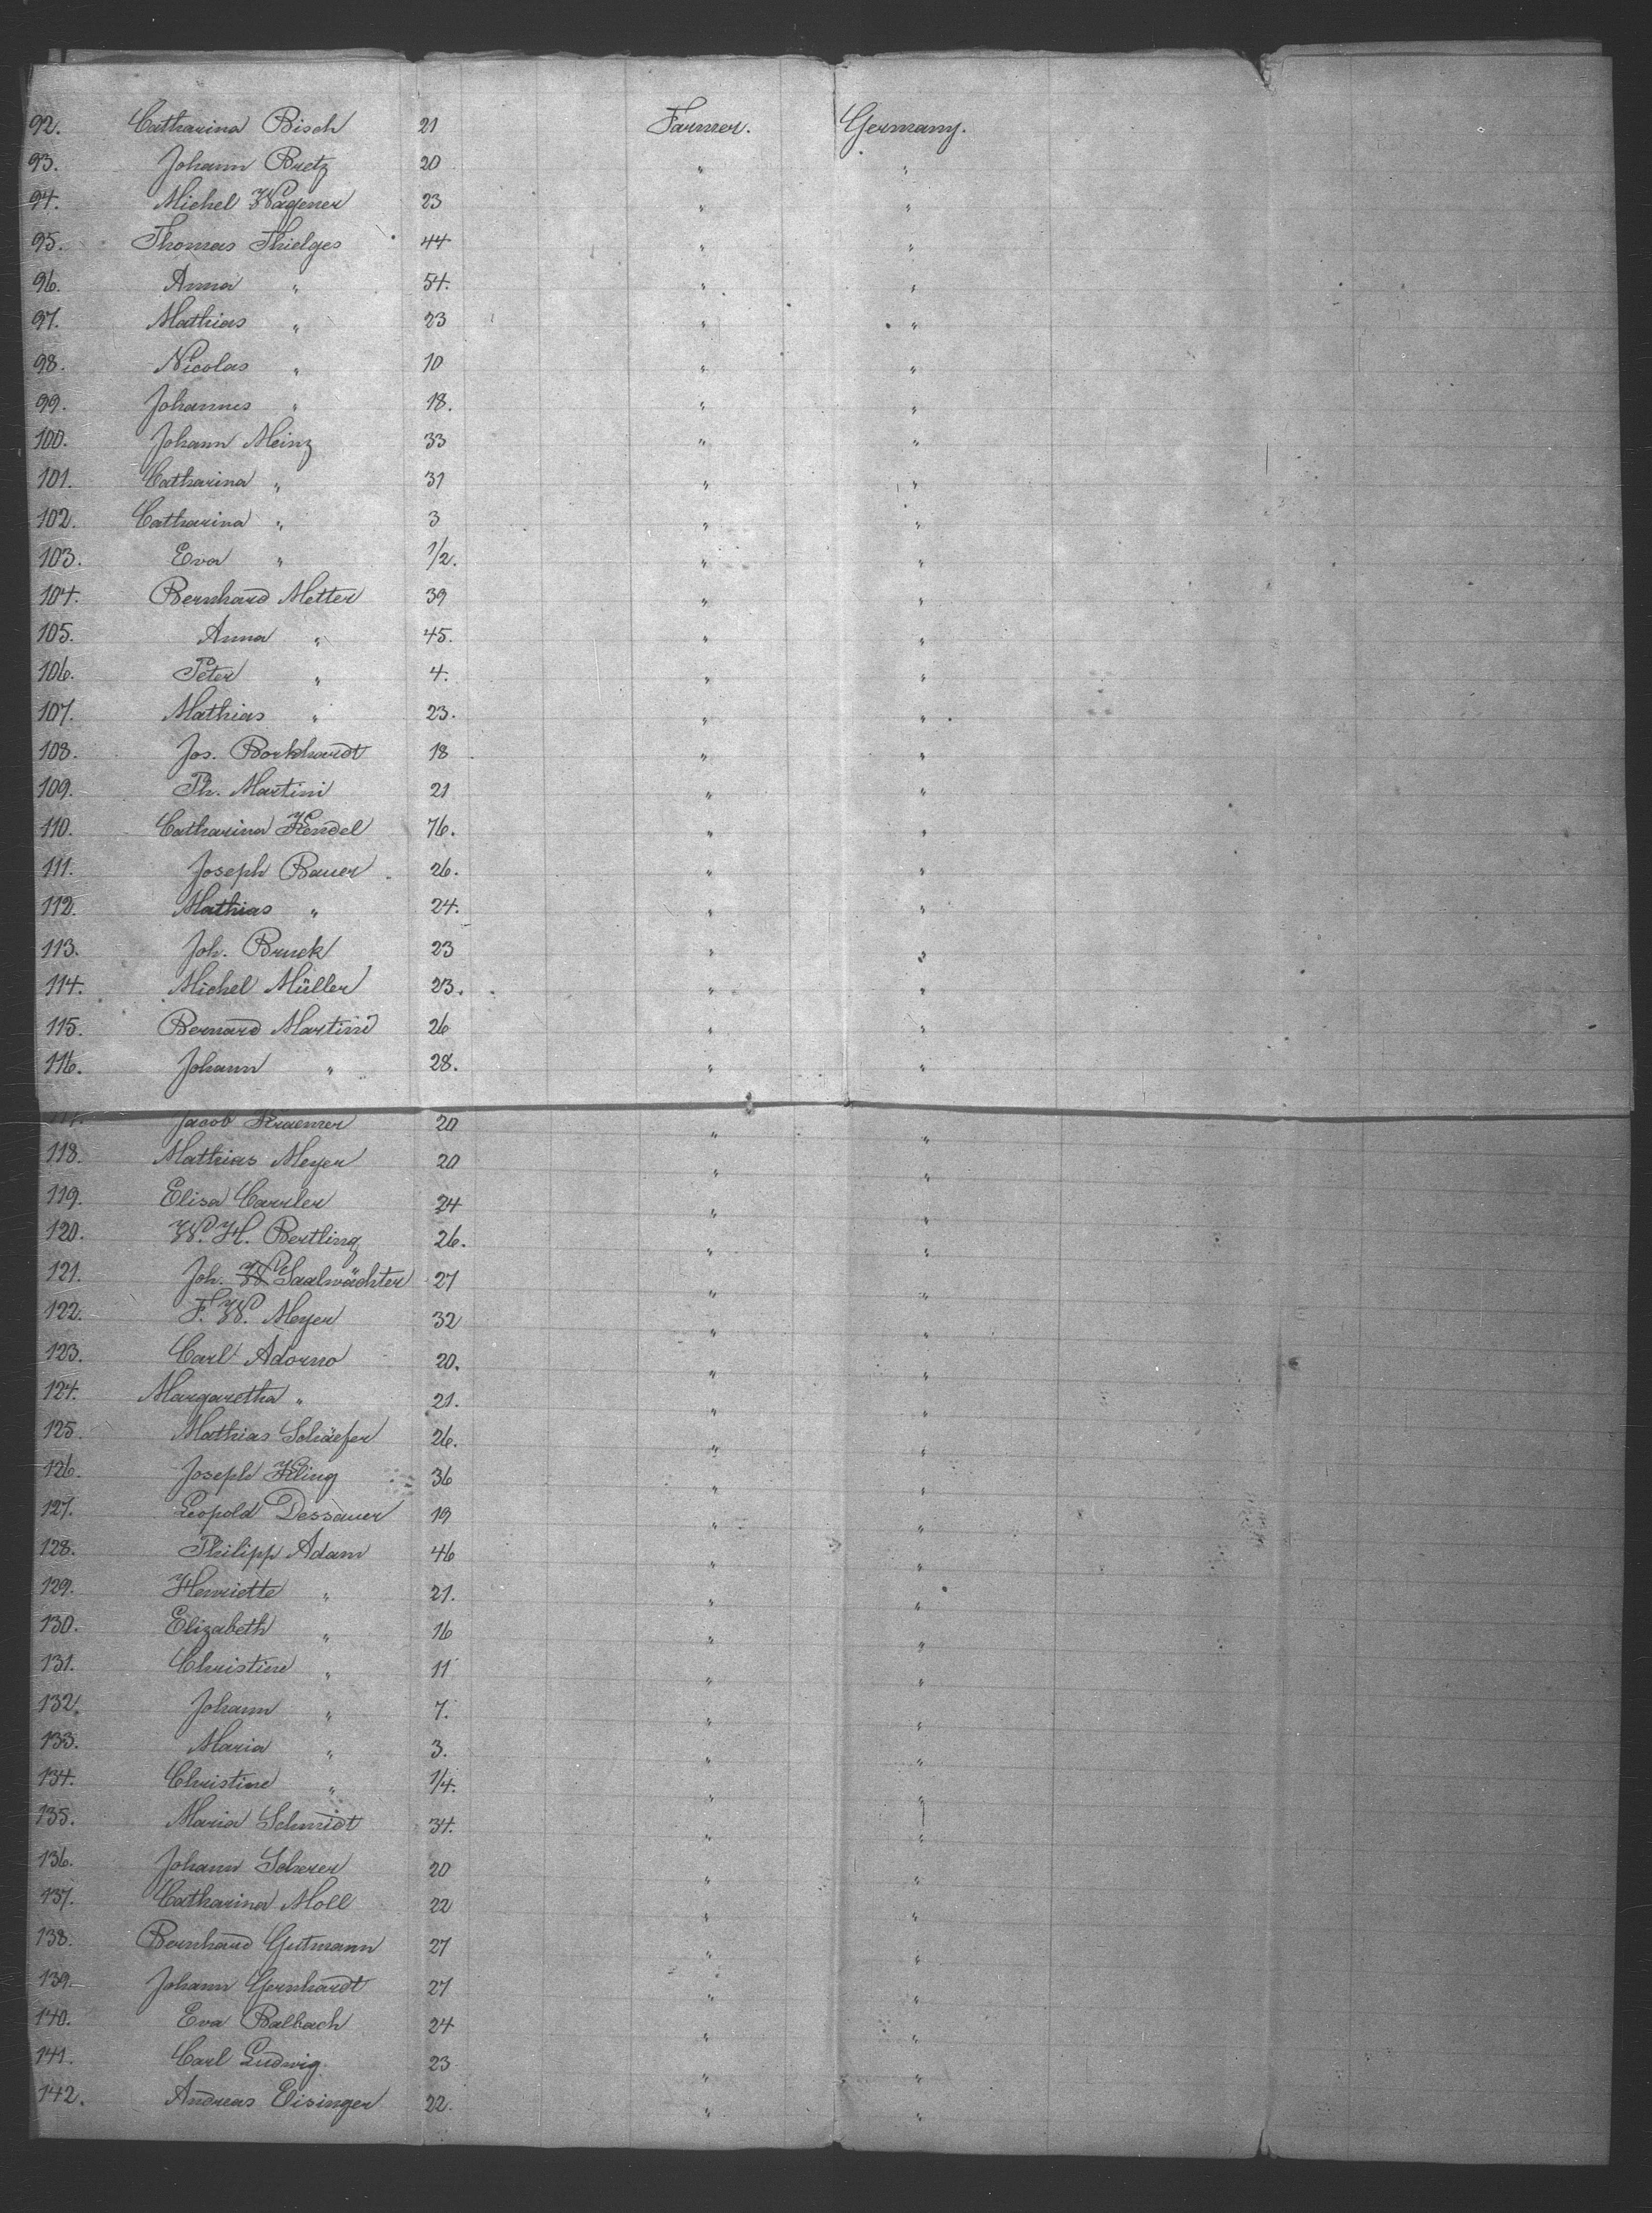 92. Catharina Bisch 21 Farmer. Germany.
93. Johann Bretz 20 " "
94. Michel Wagener 23 " "
95. Thomas Thielges 44 " "
96. Anna " 54. " "
97. Mathias " 23 " "
98. Nicolas " 10 " "
99. Johannes " 18. " "
100. Johann Meinz 33 " "
101. Catharina " 31 " "
102. Catharina " 3 " "
103. Eva " 1/2. " "
104. Bernhard Metter 39 " "
105. Anna " 45. " "
106. Peter " 4. " "
107. Mathias " 23. " "
108. Jos. Borkhardt 18 " "
109. Th. Martini 21 " "
110. Catharina Kendel 76. " "
111. Joseph Bauer 26. " "
112. Mathias " 24. " "
113. Joh. Bruck 23 " "
114. Michel Müller 23. " "
115. Bernard Martini 26 " "
116. Johann " 28. " "
117. Jacob Kraemer 20 " "
118. Mathias Meyer 20 " "
119. Elisa Carrler 24 " "
120. W. H. Bertling 26. " "
121. Joh. W Saalwächter 27 " "
122. F. W. Meyer 32 " "
123. Carl Adorno 20. " "
124. Margaretha " 21. " "
125. Mathias Schäefer 26. " "
126. Joseph Kling 36 " "
127. Leopold Dessauer 19 " "
128. Philipp Adam 46 " "
129. Henriette " 21. " "
130. Elizabeth " 16 " "
131. Christine " 11 " "
132. Johann " 7. " "
133. Maria " 3. " "
134. Christine " 1/4. " "
135. Maria Schmidt 34. " "
136. Johann Scherer 20 " "
137. Catharina Moll 22 " "
138. Bernhard Gutmann 27 " "
139. Johann Gernhardt 27 " "
140. Eva Balbach 24 " "
141. Carl Ludwig 23 " "
142. Andreas Eisinger 22. " "